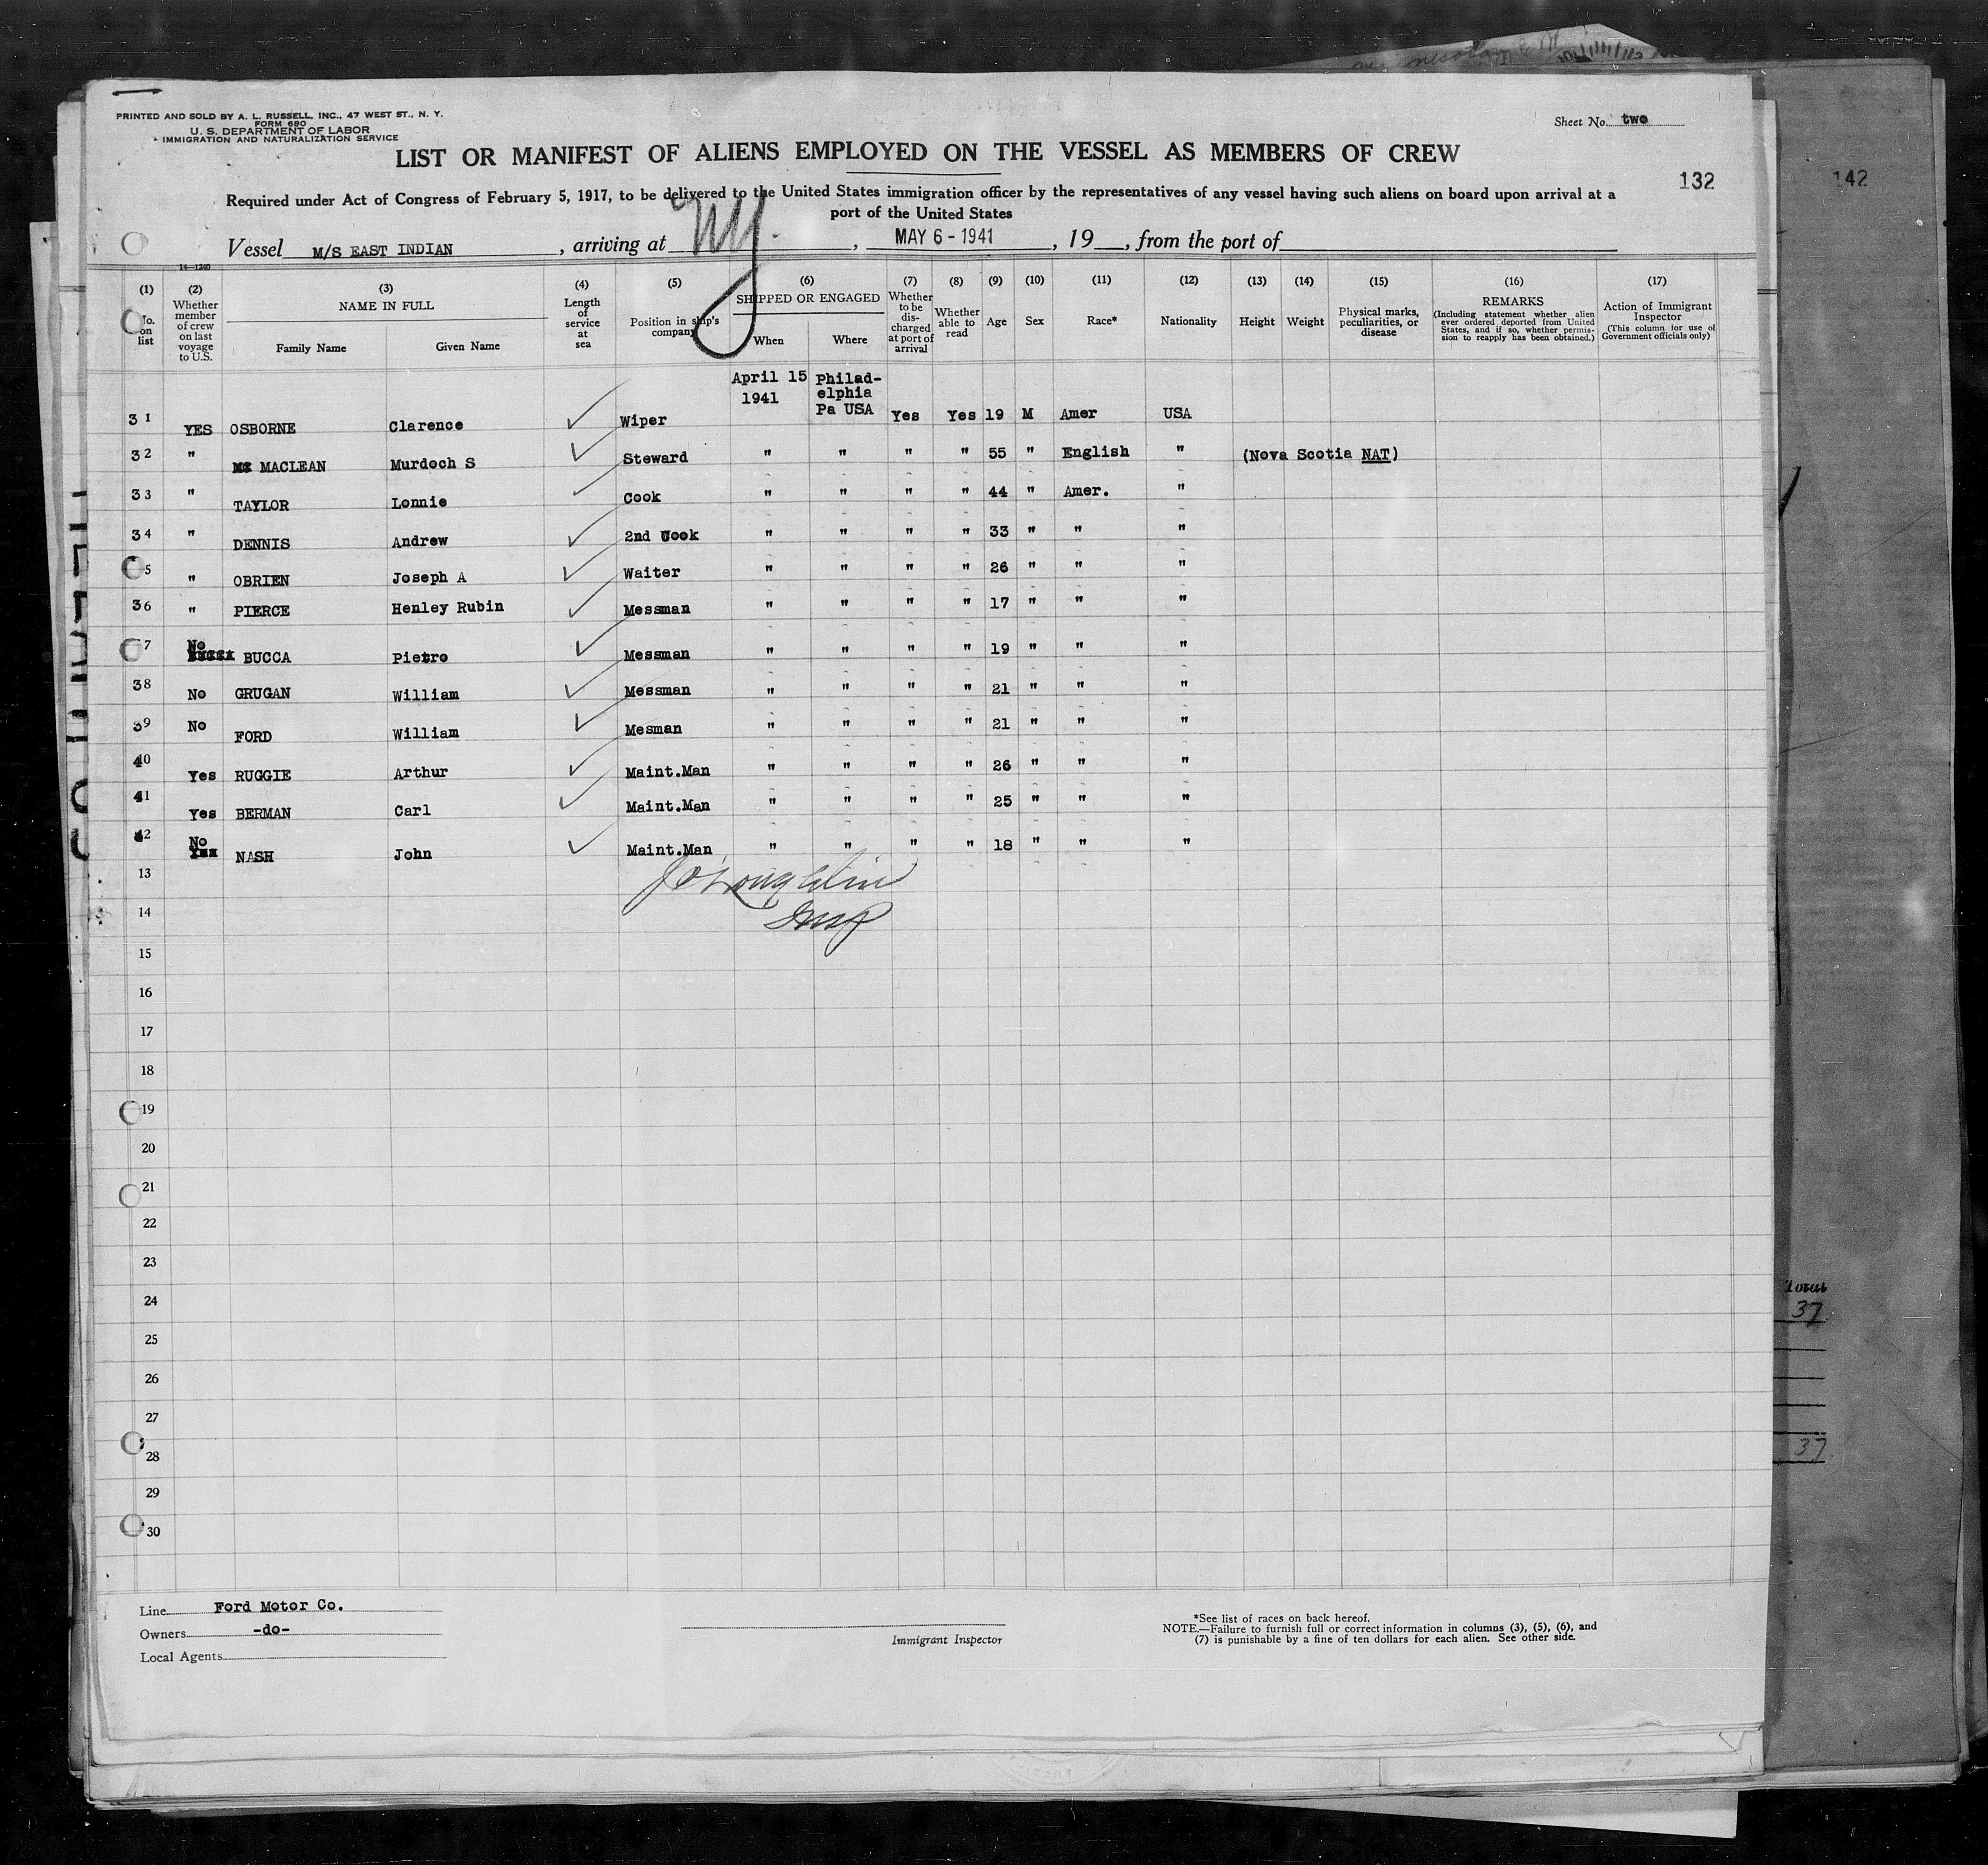 PRINTED AND SOLD BY A. L. RUSSELL, INC., 47 WEST ST., N. Y.
FORM 680
U. S. DEPARTMENT OF LABOR
IMMIGRATION AND NATURALIZATION SERVICE
Sheet No. two
LIST OR MANIFEST OF ALIENS EMPLOYED ON THE VESSEL AS MEMBERS OF CREW
132
142
Required under Act of Congress of February 5, 1917, to be delivered to the United States immigration officer by the representatives of any vessel having such aliens on board upon arrival at a
port of the United States
Vessel M/S EAST INDIAN, arriving at NY., MAY 6 - 1941, 19__, from the port of
14-1240
(1) No. on list
(2) Whether member of crew on last voyage to U.S.
(3) NAME IN FULL Family Name Given Name
(4) Length of service at sea
(5) Position in ship's company
(6) SHIPPED OR ENGAGED When Where
(7) Whether to be discharged at port of arrival
(8) Whether able to read
(9) Age
(10) Sex
(11) Race*
(12) Nationality
(13) Height
(14) Weight
(15) Physical marks, peculiarities, or disease
(16) REMARKS (Including statement whether alien ever ordered deported from United States, and if so, whether permission to reapply has been obtained.)
(17) Action of Immigrant Inspector (This column for use of Government officials only)
31 YES OSBORNE Clarence Wiper April 15 1941 Philadelphia Pa USA Yes Yes 19 M Amer USA
32 " MACLEAN Murdoch S Steward " " " " 55 " English " (Nova Scotia NAT)
33 " TAYLOR Lonnie Cook " " " " 44 " Amer. "
34 " DENNIS Andrew 2nd Cook " " " " 33 " " "
5 " OBRIEN Joseph A Waiter " " " " 26 " " "
36 " PIERCE Henley Rubin Messman " " " " 17 " " "
7 No BUCCA Pietro Messman " " " " 19 " " "
38 No GRUGAN William Messman " " " " 21 " " "
39 No FORD William Mesman " " " " 21 " " "
40 Yes RUGGIE Arthur Maint.Man " " " " 26 " " "
41 Yes BERMAN Carl Maint.Man " " " " 25 " " "
42 No NASH John Maint.Man " " " " 18 " " "
13
14
Insp
15
16
17
18
19
20
21
22
23
24
25
26
27
28
29
30
Total
37
37
Line Ford Motor Co.
Owners -do-
Local Agents
Immigrant Inspector
*See list of races on back hereof.
NOTE.—Failure to furnish full or correct information in columns (3), (5), (6), and
(7) is punishable by a fine of ten dollars for each alien. See other side.